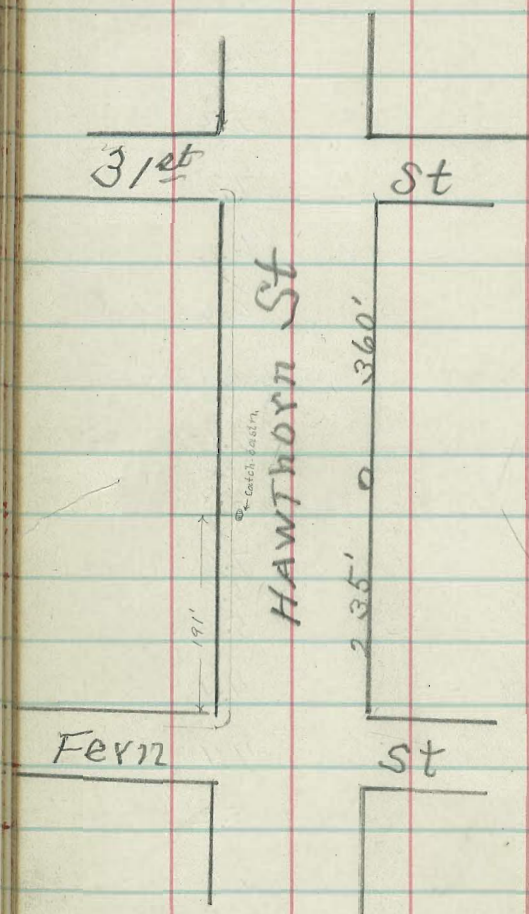 31st St
HAWThorn St
360'
Catch-basin
235'
191'
Fern St